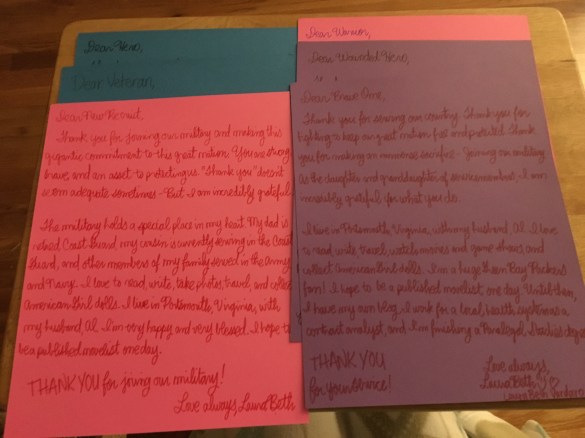 Dear Hero,
Dear Veteran,
Dear New Recruit,
Thank you for joining our military and making this
gigantic commitment to this great nation. You are strong,
brave and an asset to protecting us. "Thank you" doesn't
seem adequate sometimes - But I am incredibly grateful.
The military holds a special place in my heart. My dad is
retired Coast Guard, my cousin is currently serving in the Coast
Guard, and other members of my family served in the Army
and Navy. I love to read, write, take photos, travel, and collect
American Girl dolls. I live in Portsmouth, Virginia, with
my husband Al. I'm very happy and very blessed. I hope to
be a published novelist one day.
THANK YOU for joining our military!
Love always, Laura Beth
Dear Warrior,
Dear Wounded Hero,
Dear Brave One,
Thank you for serving our country. Thank you for
fighting to keep our great nation free and protected. Thank
you for making an immense sacrifice - joining our military.
As the daughter and granddaughter of servicemembers, I am
incredibly grateful for what you do.
I live in Portsmouth, Virginia, with my husband, Al. I love
to read, write, travel, watch movies and game shows, and
collect American Girl dolls. I'm a huge Green Bay Packers
fan! I hope to be a published novelist one day. Until then,
I have my own blog. I work for a local health system as a
contract analyst, and I'm finishing a Paralegal Studies degree
THANK YOU
for your service!
Love always,
Laura Beth
Laura Beth